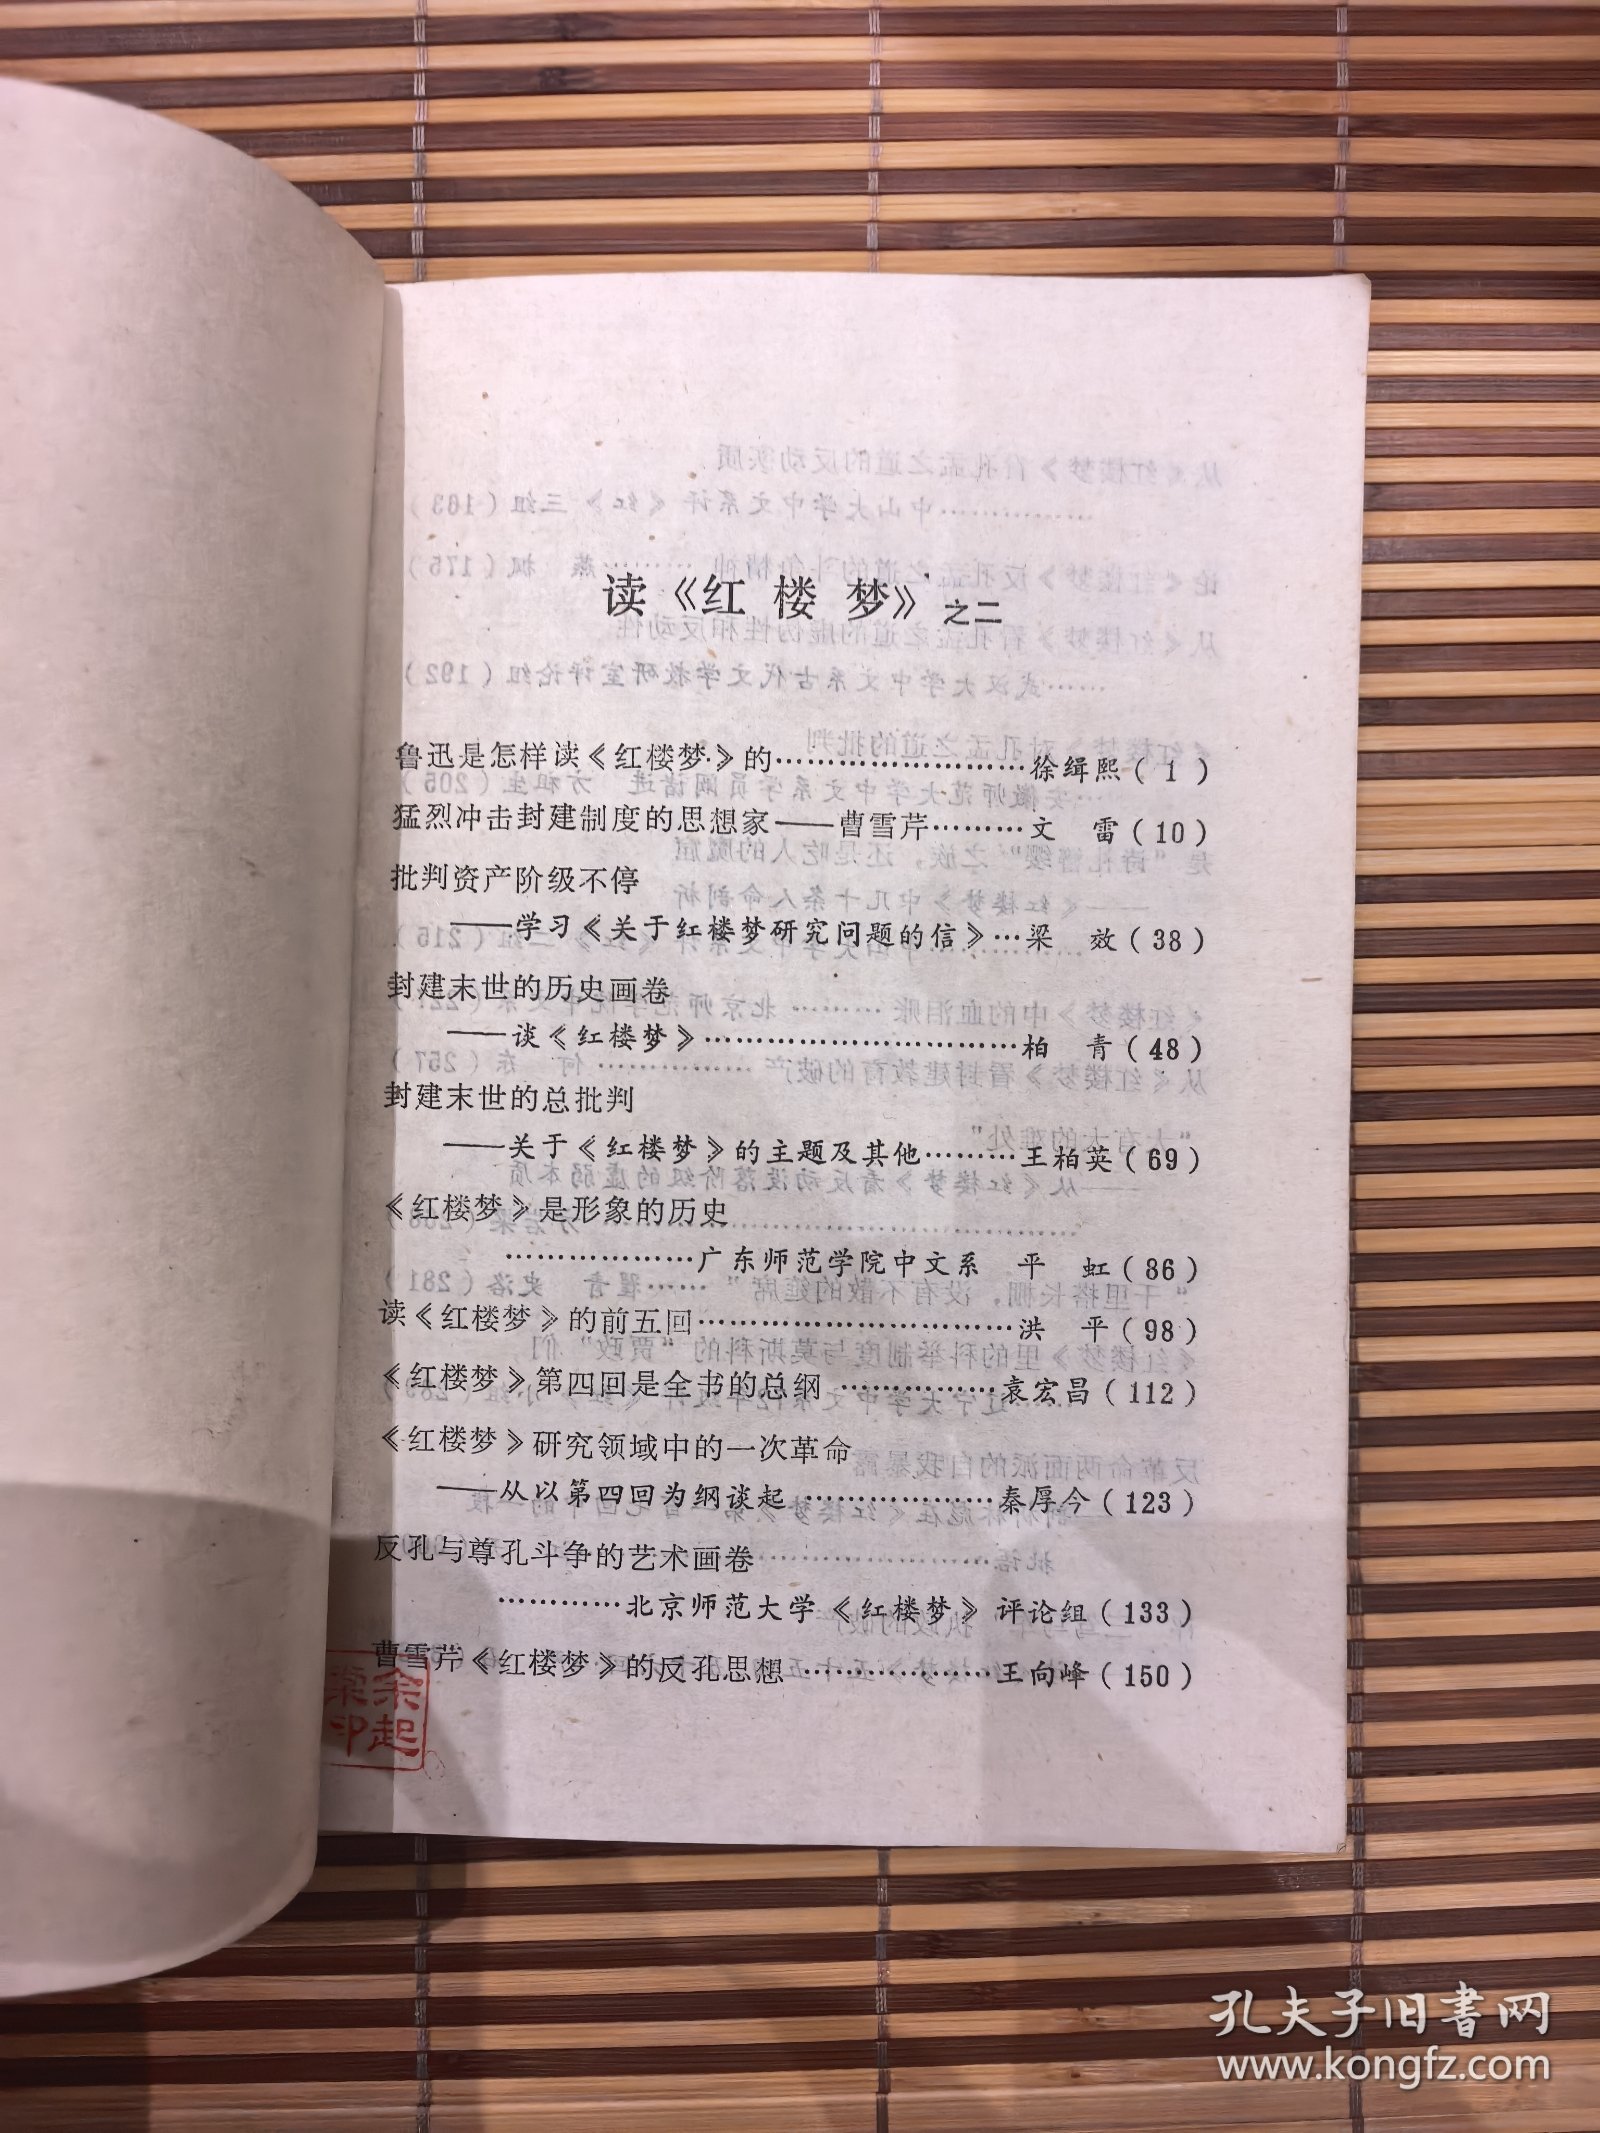 读《红楼梦》之二
鲁迅是怎样读《红楼梦》的…………………………徐缉熙(1)
猛烈冲击封建制度的思想家——曹雪芹………文　雷(10)
批判资产阶级不停
——学习《关于红楼梦研究问题的信》…梁　效(38)
封建末世的历史画卷
——谈《红楼梦》…………………………柏　青(48)
封建末世的总批判
——关于《红楼梦》的主题及其他………王柏英(69)
《红楼梦》是形象的历史
………………广东师范学院中文系　平　虹(86)
读《红楼梦》的前五回…………………………洪　平(98)
《红楼梦》第四回是全书的总纲……………袁宏昌(112)
《红楼梦》研究领域中的一次革命
——从以第四回为纲谈起………………秦厚今(123)
反孔与尊孔斗争的艺术画卷
…………北京师范大学《红楼梦》评论组(133)
曹雪芹《红楼梦》的反孔思想………………王向峰(150)
余起
梁印
孔夫子旧书网
www.kongfz.com